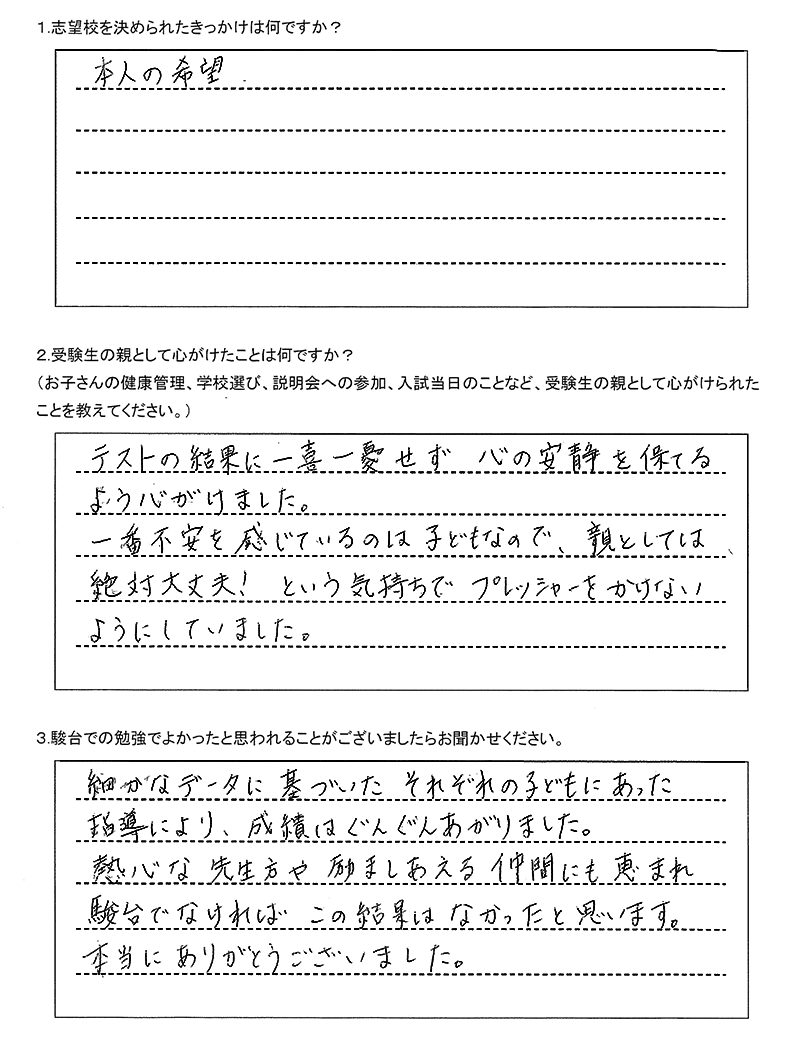 1.志望校を決められたきっかけは何ですか？
本人の希望
2.受験生の親として心がけたことは何ですか？
（お子さんの健康管理、学校選び、説明会への参加、入試当日のことなど、受験生の親として心がけられた
ことを教えてください。）
テストの結果に一喜一憂せず 心の安静を保てる
よう心がけました。
一番不安を感じているのは子どもなので、親としては、
絶対大丈夫！ という気持ちで プレッシャーをかけない
ようにしていました。
3.駿台での勉強でよかったと思われることがございましたらお聞かせください。
細かなデータに基づいた それぞれの子どもにあった
指導により、成績はぐんぐんあがりました。
熱心な先生方や励ましあえる仲間にも恵まれ
駿台でなければ この結果は なかったと思います。
本当にありがとうございました。